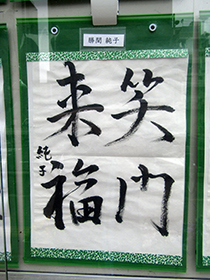 勝間 純子
笑門
来福
純子